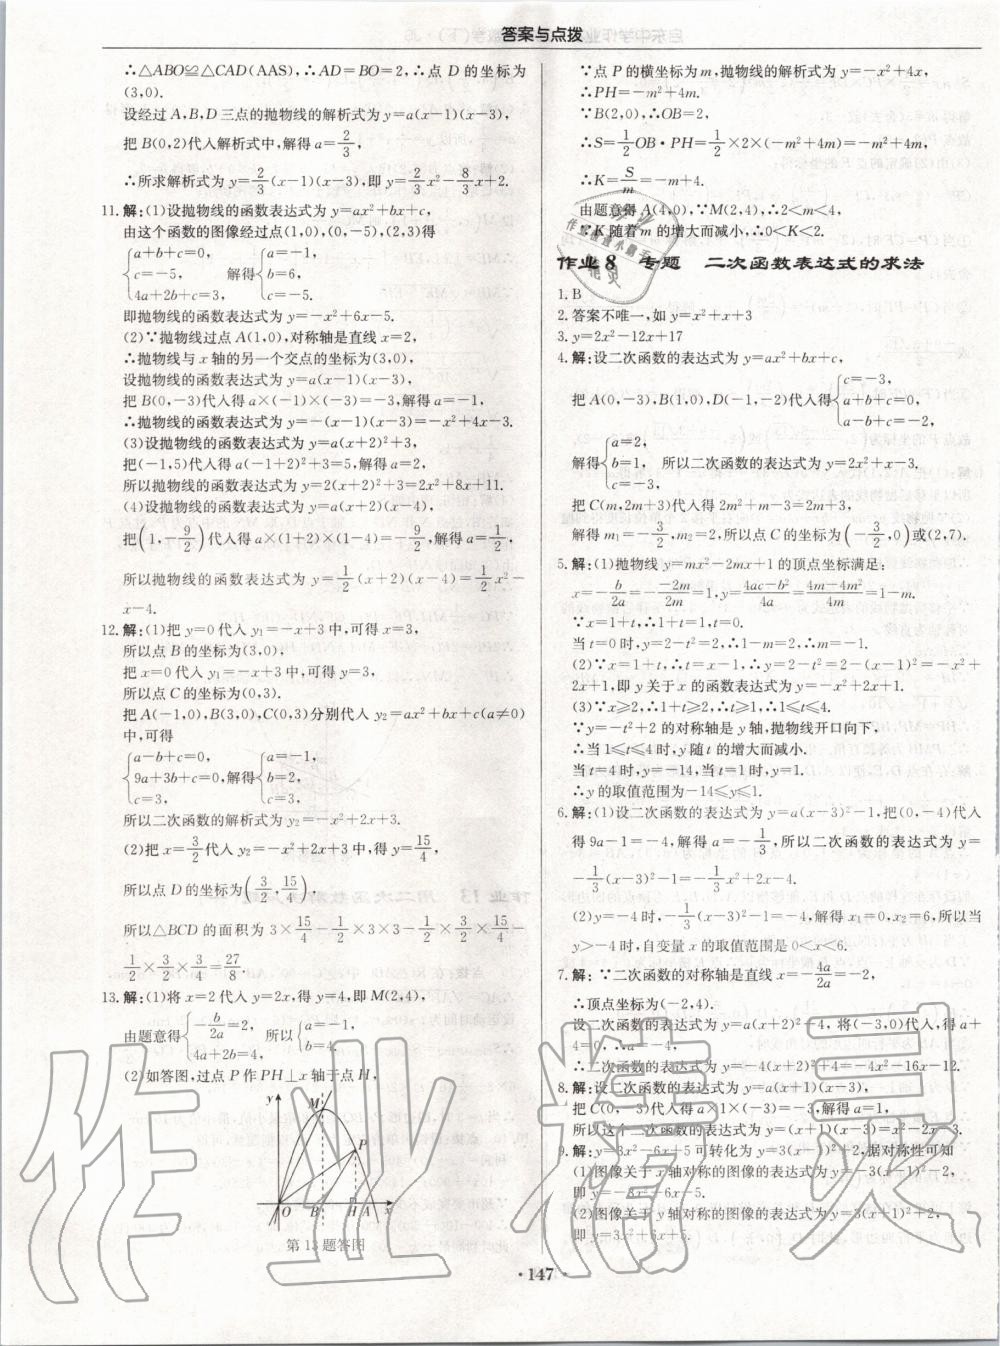 答案与点拨
∴△ABO≌△CAD(AAS),∴AD=BO=2,∴点 D 的坐标为
(3,0).
设经过 A,B,D 三点的抛物线的解析式为 y=a(x-1)(x-3),
把 B(0,2)代入解析式中,解得 a=2/3,
∴所求解析式为 y=2/3(x-1)(x-3),即 y=2/3x²-8/3x+2.
11. 解:(1)设抛物线的函数表达式为 y=ax²+bx+c,
由这个函数的图像经过点(1,0),(0,-5),(2,3)得
{a+b+c=0, c=-5, 4a+2b+c=3, 解得{a=-1, b=6, c=-5.
即抛物线的函数表达式为 y=-x²+6x-5.
(2)∵抛物线过点 A(1,0),对称轴是直线 x=2,
∴抛物线与 x 轴的另一个交点的坐标为(3,0),
设抛物线的函数表达式为 y=a(x-1)(x-3),
把 B(0,-3)代入得 a×(-1)×(-3)=-3,解得 a=-1,
∴抛物线的函数表达式为 y=-(x-1)(x-3)=-x²+4x-3.
(3)设抛物线的函数表达式为 y=a(x+2)²+3,
把(-1,5)代入得 a(-1+2)²+3=5,解得 a=2,
所以抛物线的函数表达式为 y=2(x+2)²+3=2x²+8x+11.
(4)设抛物线的函数表达式为 y=a(x+2)(x-4),
把(1,-9/2)代入得 a×(1+2)×(1-4)=-9/2,解得 a=1/2,
所以抛物线的函数表达式为 y=1/2(x+2)(x-4)=1/2x²-
x-4.
12. 解:(1)把 y=0 代入 y₁=-x+3 中,可得 x=3,
所以点 B 的坐标为(3,0),
把 x=0 代入 y₁=-x+3 中,可得 y=3,
所以点 C 的坐标为(0,3).
把 A(-1,0),B(3,0),C(0,3)分别代入 y₂=ax²+bx+c(a≠0)
中,可得
{a-b+c=0, 9a+3b+c=0, c=3, 解得{a=-1, b=2, c=3.
所以二次函数的解析式为 y₂=-x²+2x+3.
(2)把 x=3/2代入 y₂=-x²+2x+3 中,得 y=15/4,
所以点 D 的坐标为(3/2,15/4),
所以△BCD 的面积为 3×15/4-1/2×3×3-1/2×3/2×15/4-
1/2×3/2×3/4=27/8.
13. 解:(1)将 x=2 代入 y=2x,得 y=4,即 M(2,4),
由题意得{-b/2a=2, 4a+2b=4, 所以{a=-1, b=4.
(2)如答图,过点 P 作 PH⊥x 轴于点 H,
y
M
P
O B H A x
第 13 题答图
∵点 P 的横坐标为 m,抛物线的解析式为 y=-x²+4x,
∴PH=-m²+4m.
∵B(2,0),∴OB=2,
∴S=1/2OB·PH=1/2×2×(-m²+4m)=-m²+4m,
∴K=S/m=-m+4.
由题意得 A(4,0),∵M(2,4),∴2<m<4,
∵K 随着 m 的增大而减小,∴0<K<2.
作业 8 专题 二次函数表达式的求法
1. B
2. 答案不唯一,如 y=x²+x+3
3. y=2x²-12x+17
4. 解:设二次函数的表达式为 y=ax²+bx+c,
把 A(0,-3),B(1,0),D(-1,-2)代入得{c=-3, a+b+c=0, a-b+c=-2,
解得{a=2, b=1, c=-3, 所以二次函数的表达式为 y=2x²+x-3,
把 C(m,2m+3)代入得 2m²+m-3=2m+3,
解得 m₁=-3/2,m₂=2,所以点 C 的坐标为(-3/2,0)或(2,7).
5. 解:(1)抛物线 y=mx²-2mx+1 的顶点坐标满足:
x=-b/2a=--2m/2m=1,y=4ac-b²/4a=4m-4m²/4m=1-m.
∵x=1+t,∴1+t=1,t=0.
当 t=0 时,y=2-t²=2,∴1-m=2,∴m=-1.
(2)∵x=1+t,∴t=x-1,∴y=2-t²=2-(x-1)²=-x²+
2x+1,即 y 关于 x 的函数表达式为 y=-x²+2x+1.
(3)∵x≥2,∴1+t≥2,∴t≥1,∴1≤t≤4.
∵y=-t²+2 的对称轴是 y 轴,抛物线开口向下,
∴当 1≤t≤4 时,y 随 t 的增大而减小.
当 t=4 时,y=-14,当 t=1 时,y=1.
∴y 的取值范围为-14≤y≤1.
6. 解:(1)设二次函数的表达式为 y=a(x-3)²-1,把(0,-4)代入
得 9a-1=-4,解得 a=-1/3,所以二次函数的表达式为 y=
-1/3(x-3)²-1=-1/3x²+2x-4.
(2)y=-4 时,-1/3(x-3)²-1=-4,解得 x₁=0,x₂=6,所以当
y>-4 时,自变量 x 的取值范围是 0<x<6.
7. 解:∵二次函数的对称轴是直线 x=-4a/2a=-2,
∴顶点坐标为(-2,4).
设二次函数的表达式为 y=a(x+2)²+4,将(-3,0)代入,得 a+
4=0,∴a=-4,
∴二次函数的表达式为 y=-4(x+2)²+4=-4x²-16x-12.
8. 解:设二次函数的表达式为 y=a(x+1)(x-3),
把 C(0,-3)代入得 a×1×(-3)=-3,解得 a=1,
所以这个二次函数的表达式为 y=(x+1)(x-3)=x²-2x-3.
9. 解:y=3x²-6x+5 可转化为 y=3(x-1)²+2,据对称性可知
(1)图像关于 x 轴对称的图像的表达式为 y=-3(x-1)²-2,
即 y=-3x²+6x-5.
(2)图像关于 y 轴对称的图像的表达式为 y=3(x+1)²+2,
即 y=3x²+6x+5.
·147·
作业精灵